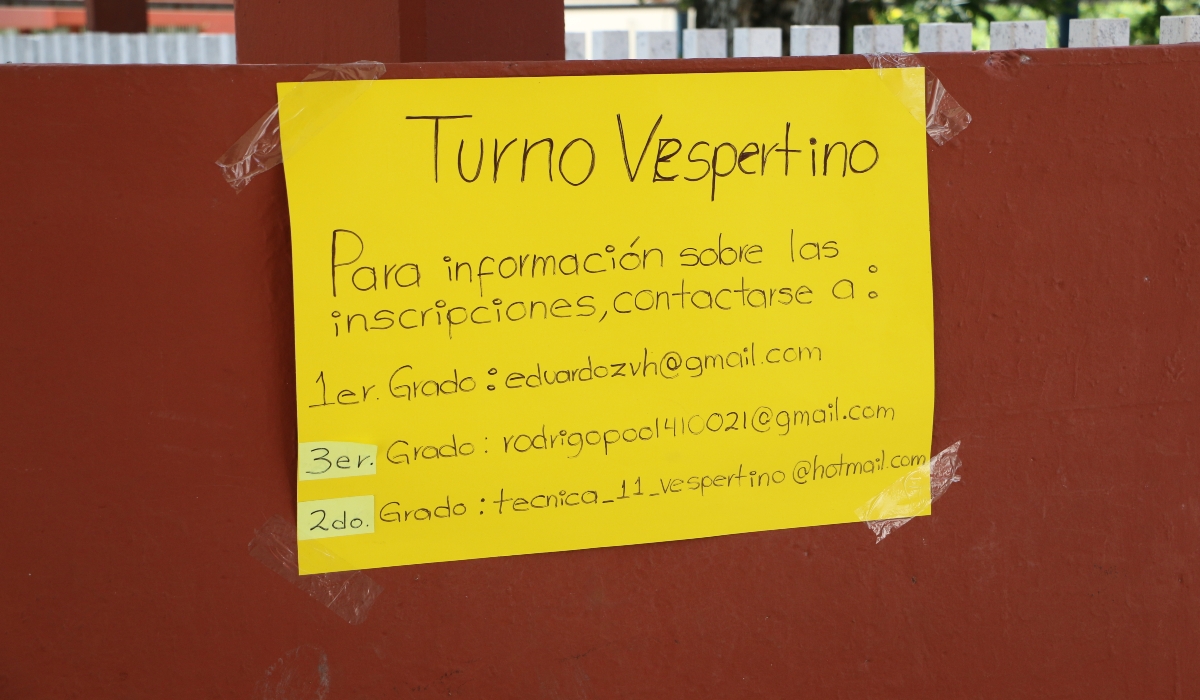 Turno Vespertino
Para información sobre las
inscripciones, contactarse a:
1er. Grado: eduardozvh@gmail.com
3er. Grado: rodrigopool410021@gmail.com
2do. Grado: tecnica_11_vespertino@hotmail.com